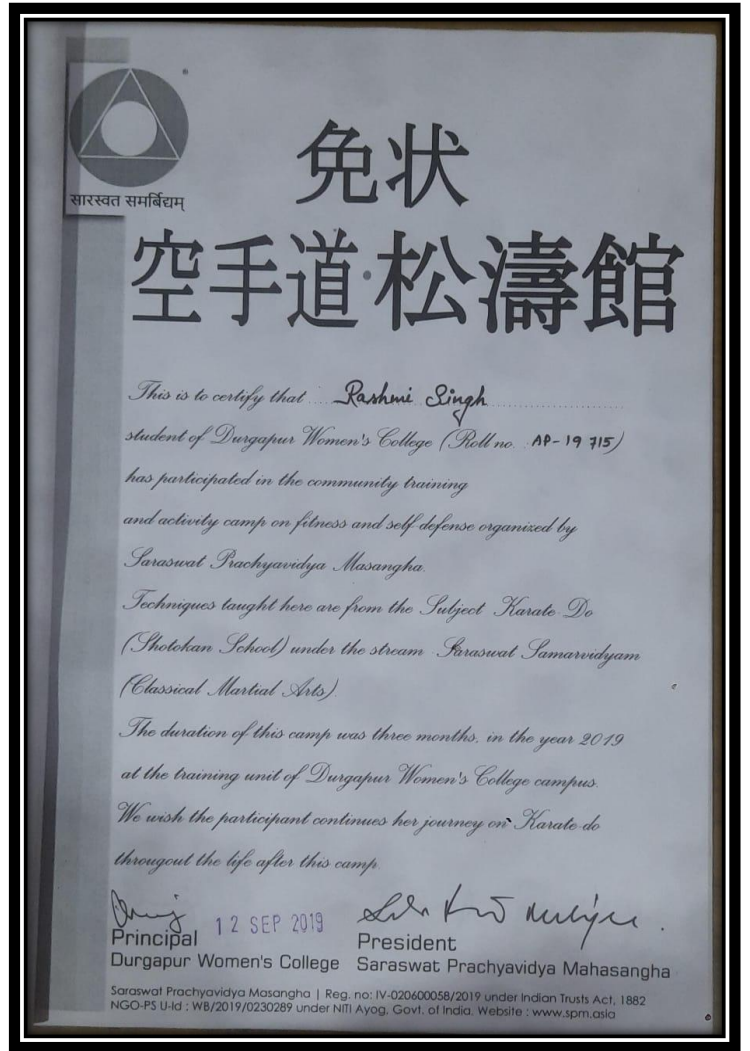 सारस्वत समर्बिद्यम्
免状
空手道・松濤館
This is to certify that Rashmi Singh
student of Durgapur Women's College (Roll no. AP-19 715)
has participated in the community training
and activity camp on fitness and self-defense organized by
Saraswat Prachyavidya Masangha.
Techniques taught here are from the Subject Karate-Do
(Shotokan School) under the stream Saraswat Samarvidyam
(Classical Martial Arts)
The duration of this camp was three months, in the year 2019
at the training unit of Durgapur Women's College campus.
We wish the participant continues her journey on Karate-do
througout the life after this camp.
12 SEP 2019
Principal President
Durgapur Women's College Saraswat Prachyavidya Mahasangha
Saraswat Prachyavidya Masangha | Reg. no: IV-020600058/2019 under Indian Trusts Act, 1882
NGO-PS U-Id : WB/2019/0230289 under NITI Ayog, Govt. of India, Website : www.spm.asia